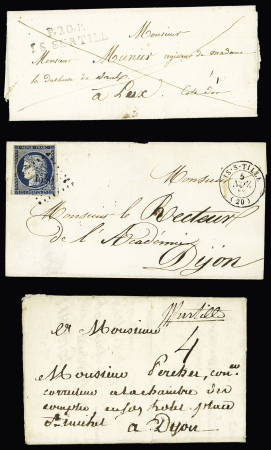 P.20.P.
IS.SURTILL
Monsieur
Monsieur Munier regisseur de madame
la duchesse de Saulx
à Lux Côte d'or
IS-S-TILLE
5
NOV.
(20)
Monsieur
Monsieur le Recteur
de l'Académie
Dijon
Surtille
A Monsieur
4
Monsieur Percher, con.er
correcteur a la chambre des
comptes en son hotel place
St michel à Dijon